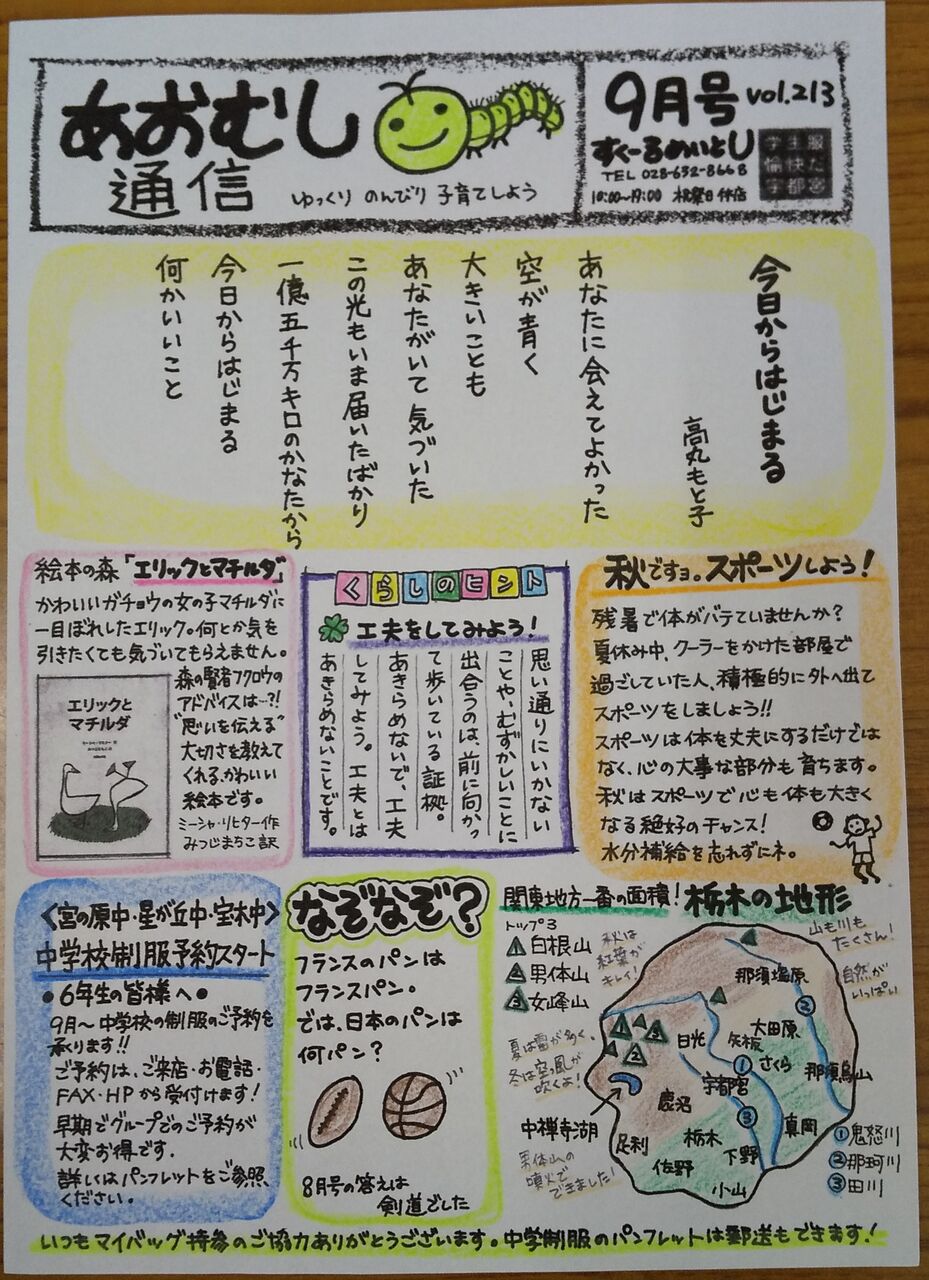 あおむし
通信
ゆっくり のんびり 子育てしよう
9月号 vol.213
すくーるめいとU
TEL 028-632-8668
10:00~19:00 木・祭日休店
学生服
愉快だ
宇都宮
今日からはじまる
高丸もと子
あなたに会えてよかった
空が青く
大きいことも
あなたがいて気づいた
この光もいま届いたばかり
一億五千万キロのかなたから
今日からはじまる
何かいいこと
絵本の森「エリックとマチルダ」
かわいいガチョウの女の子マチルダに
一目ぼれしたエリック。何とか気を
引きたくても気づいてもらえません。
森の賢者フクロウの
アドバイスは…?!
"思いを伝える"
大切さを教えて
くれる、かわいい
絵本です。
ミーシャ・リヒター作
みつじまちこ訳
エリックと
マチルダ
くらしのヒント
工夫をしてみよう!
思い通りにいかない
ことや、むずかしいことに
出合うのは、前に向かっ
て歩いている証拠。
あきらめないで、工夫
してみよう。工夫とは
あきらめないことです。
秋ですョ。スポーツしよう!
残暑で体がバテていませんか?
夏休み中、クーラーをかけた部屋で
過ごしていた人、積極的に外へ出て
スポーツをしましょう!!
スポーツは体を丈夫にするだけでは
なく、心の大事な部分も育ちます。
秋はスポーツで心も体も大きく
なる絶好のチャンス!
水分補給を忘れずにネ。
<宮の原中・星が丘中・宝木中>
中学校制服予約スタート
●6年生の皆様へ●
9月~中学校の制服のご予約を
承ります!!
ご予約は、ご来店・お電話・
FAX・HPから受付けます!
早期でグループでのご予約が
大変お得です.
詳しくはパンフレットをご参照、
ください。
なぞなぞ?
フランスのパンは
フランスパン.
では、日本のパンは
何パン?
8月号の答えは
剣道でした
関東地方一番の面積!栃木の地形
トップ3
1 白根山
2 男体山
3 女峰山
秋は
紅葉が
キレイ!
山も川も
たくさん!
自然が
いっぱい
夏は雷が多く、
冬は空っ風が
吹くよ!
那須塩原
大田原
矢板
日光
さくら
那須烏山
宇都宮
鹿沼
真岡
栃木
下野
足利
佐野
小山
中禅寺湖
男体山の
噴火で
できました!
①鬼怒川
②那珂川
③田川
いつもマイバッグ持参のご協力ありがとうございます。中学制服のパンフレットは郵送もできます!